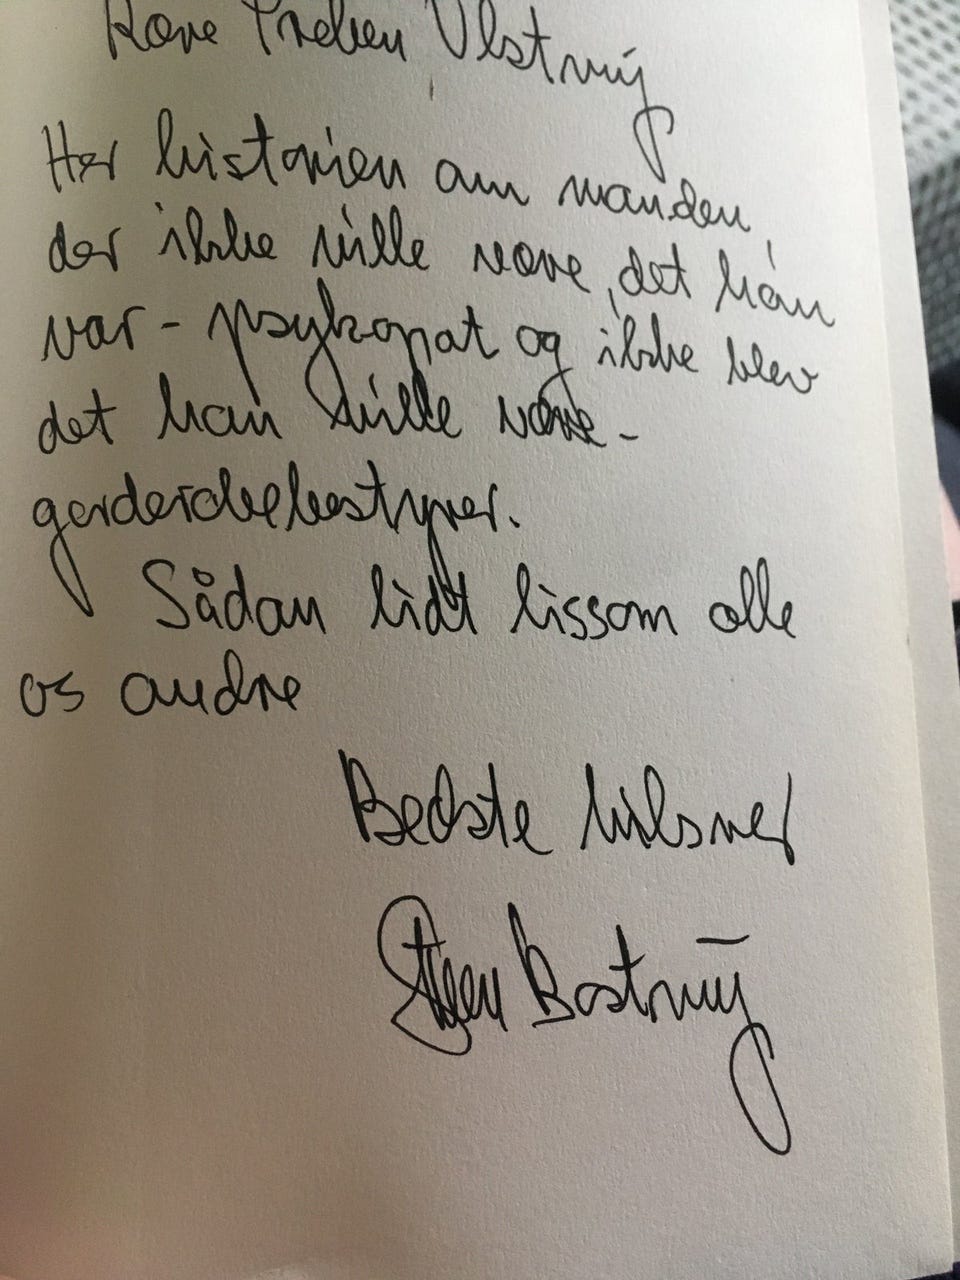 Kære Preben Ulstrup
Her historien om manden,
der ikke ville være, det han
var - psykopat og ikke blev
det han ville være -
garderobebestyrer.
Sådan lidt lissom alle
os andre
Bedste hilsner
Steen Bostrup